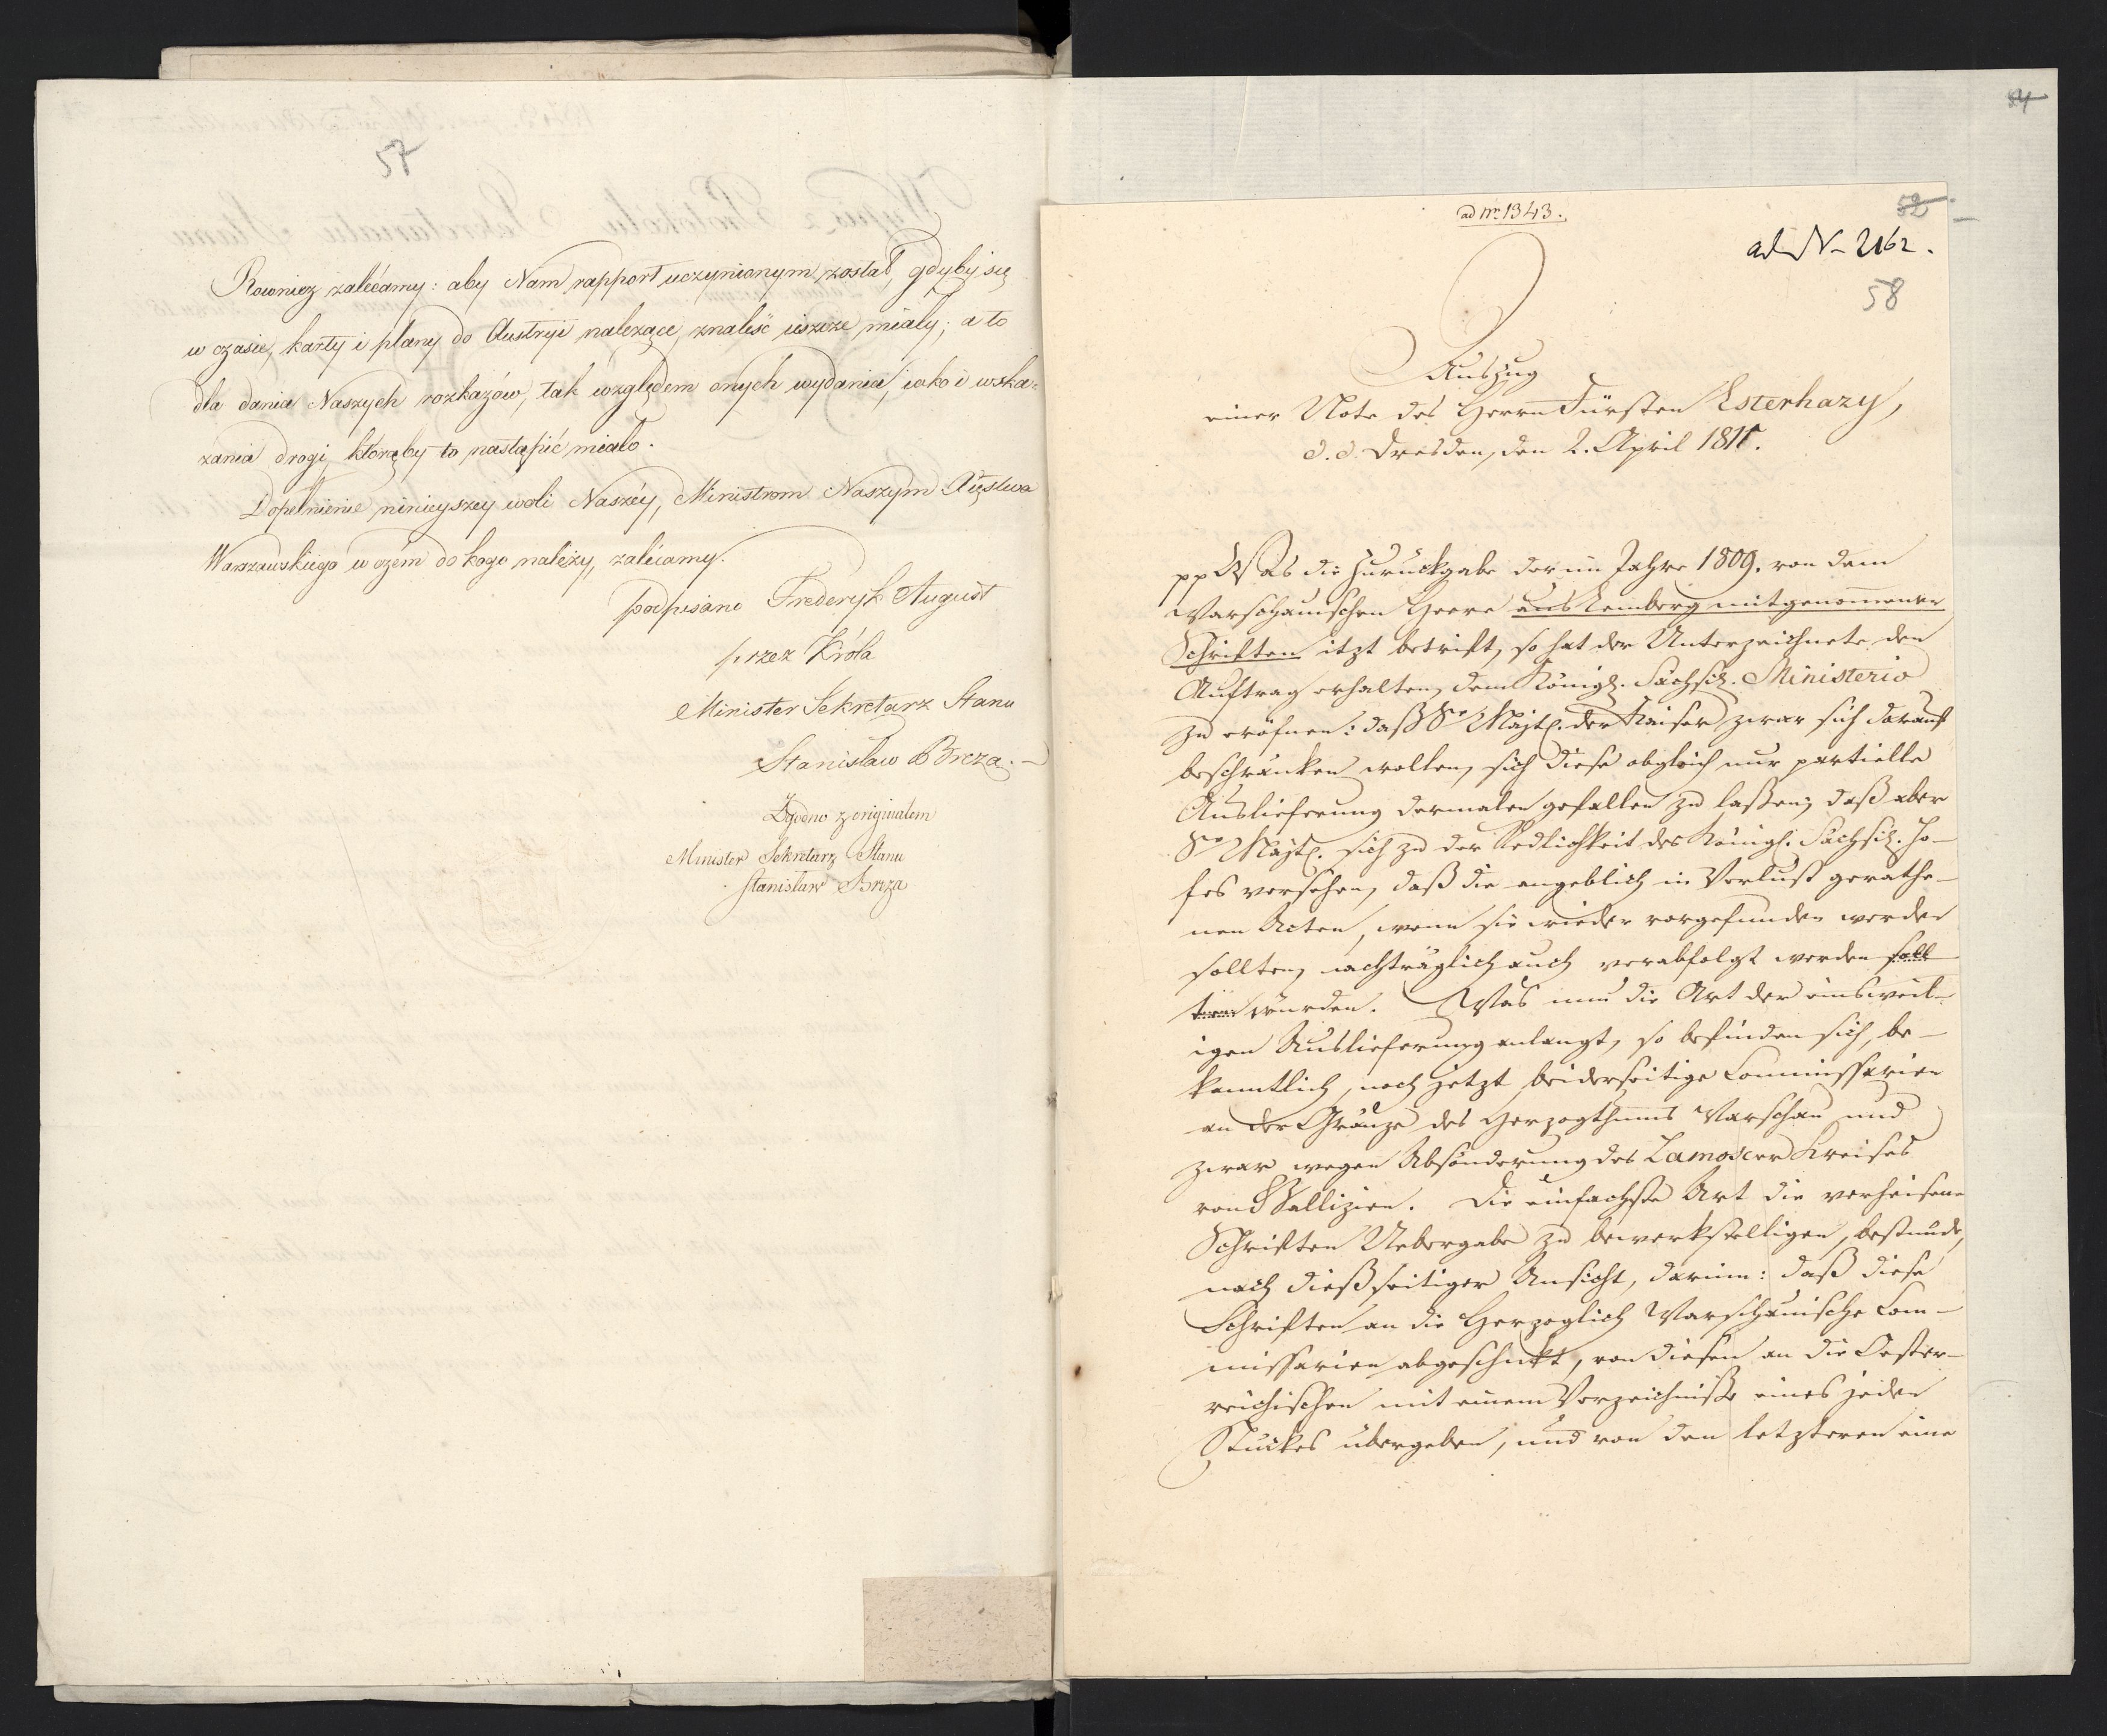 57
Rowniez zalécamy: aby Nam rapport uczynionym został, gdyby się
w czasie, karty i plany do Austryi należące, znaleść ieszcze miały; a to
dla dania Naszych rozkazów, tak względem onych wydania, iako i wska-
zania drogi, którąby to nastąpić miało.
Dopełnienie ninieyszey woli Naszéy, Ministrom Naszym Xięstwa
Warszawskiego w czém do kogo należy, zalécamy.
podpisano Frederyk August
przez Króla
Minister Sekretarz Stanu
Stanisław Breza.
Zgodno z originałem
Minister Sekretarz Stanu
Stanisław Breza
54
ad nr. 1343.
52
ad N- 2162.
58
Auszug
einer Note des Herrn Fürsten Esterhazy,
d. d. Dresden, den 2. April 1811.
pp Was die Zurückgabe der im Jahre 1809. von dem
Warschauischen Heere aus Lemberg mitgenommenen
Schriften itzt betrift, so hat der Unterzeichnete den
Auftrag erhalten, dem Königl. Sächsisch. Ministerio
zu eröfnen: daß Se Majt. der Kaiser zwar sich darauf
beschränken wollen, sich diese obgleich nur partielle
Auslieferung dermalen gefallen zu laßen; daß aber
Se Majt. sich zu der Redlichkeit des Königl. Sächsisch. Ho-
fes versehen, daß die angeblich in Verlust gerathe-
nen Acten, wenn sie wieder vorgefunden werden
sollten, nachträglich auch verabfolgt werden soll
ten würden. Was nun die Art der einsweil-
igen Auslieferung anlangt, so befinden sich, be-
kanntlich, noch jetzt beiderseitige Commissarien
an der Gränze des Herzogthums Warschau und
zwar wegen Absönderung des Zamoscer Kreises
von Gallizien. Die einfachste Art die verheisene
Schriften Uebergabe zu bewerkstelligen, bestünde,
nach dießseitiger Ansicht, darinn: daß diese
Schriften an die Herzoglich Warschauische Com-
missarien abgeschickt, von diesen an die Oester-
reichischen mit einem Verzeichniße eines jeden
Stückes übergeben, und von den letzteren eine